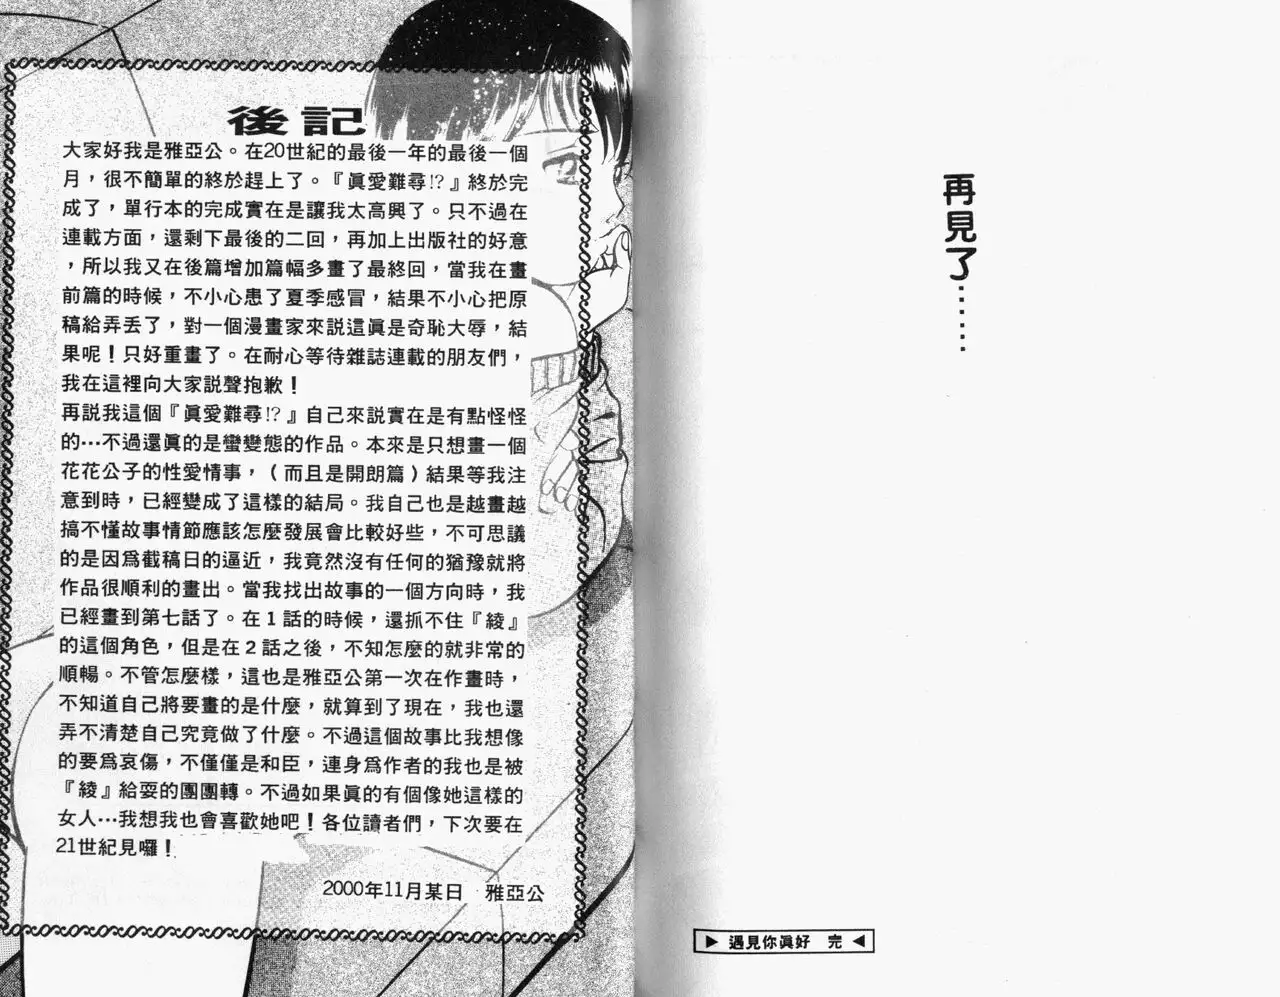 再見了……
▶ 遇見你眞好　完 ◀
後記
大家好我是雅亞公。在20世紀的最後一年的最後一個
月，很不簡單的終於趕上了。『眞愛難尋!?』終於完
成了，單行本的完成實在是讓我太高興了。只不過在
連載方面，還剩下最後的二回，再加上出版社的好意
，所以我又在後篇增加篇幅多畫了最終回，當我在畫
前篇的時候，不小心患了夏季感冒，結果不小心把原
稿給弄丟了，對一個漫畫家來說這眞是奇恥大辱，結
果呢！只好重畫了。在耐心等待雜誌連載的朋友們，
我在這裡向大家説聲抱歉！
再説我這個『眞愛難尋!?』自己來説實在是有點怪怪
的…不過還眞的是蠻變態的作品。本來是只想畫一個
花花公子的性愛情事，（而且是開朗篇）結果等我注
意到時，已經變成了這樣的結局。我自己也是越畫越
搞不懂故事情節應該怎麼發展會比較好些，不可思議
的是因爲截稿日的逼近，我竟然沒有任何的猶豫就將
作品很順利的畫出。當我找出故事的一個方向時，我
已經畫到第七話了。在１話的時候，還抓不住『綾』
的這個角色，但是在２話之後，不知怎麼的就非常的
順暢。不管怎麼樣，這也是雅亞公第一次在作畫時，
不知道自己將要畫的是什麼，就算到了現在，我也還
弄不清楚自己究竟做了什麼。不過這個故事比我想像
的要爲哀傷，不僅僅是和臣，連身爲作者的我也是被
『綾』給耍的團團轉。不過如果眞的有個像她這樣的
女人…我想我也會喜歡她吧！各位讀者們，下次要在
21世紀見囉！
2000年11月某日　雅亞公